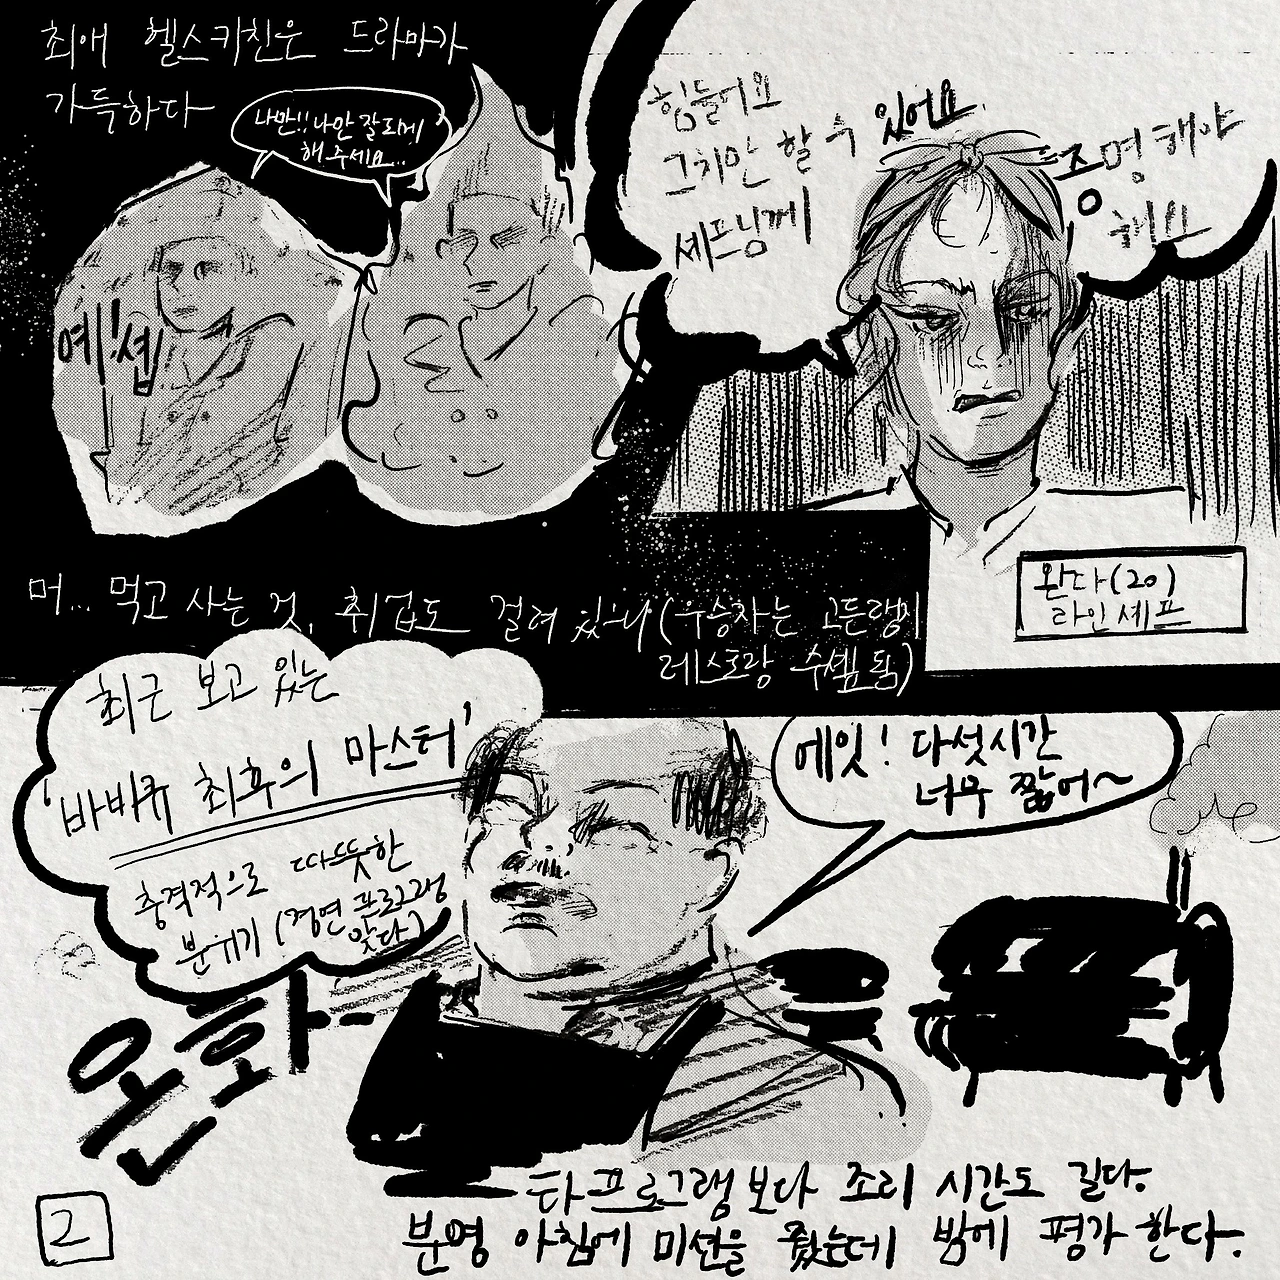 최애 헬스키친은 드라마가
가득하다
나만!! 나만 잘되게
해주세요..
예! 셰프!
힘들어요
그치만 할 수 있어요
셰프님께
증명해야
해요
완다(20)
라인셰프
머... 먹고 사는 것, 취업도 걸려 있으니 (우승자는 고든램지
레스토랑 수셰프 됨)
최근 보고 있는
'바바큐 최후의 마스터'
충격적으로 따뜻한
분위기 (경연 프로그램
맞다)
에잇! 다섯시간
너무 짧어~
온화-
타 프로그램보다 조리 시간도 길다.
분명 아침에 미션을 줬는데 밤에 평가한다.
2